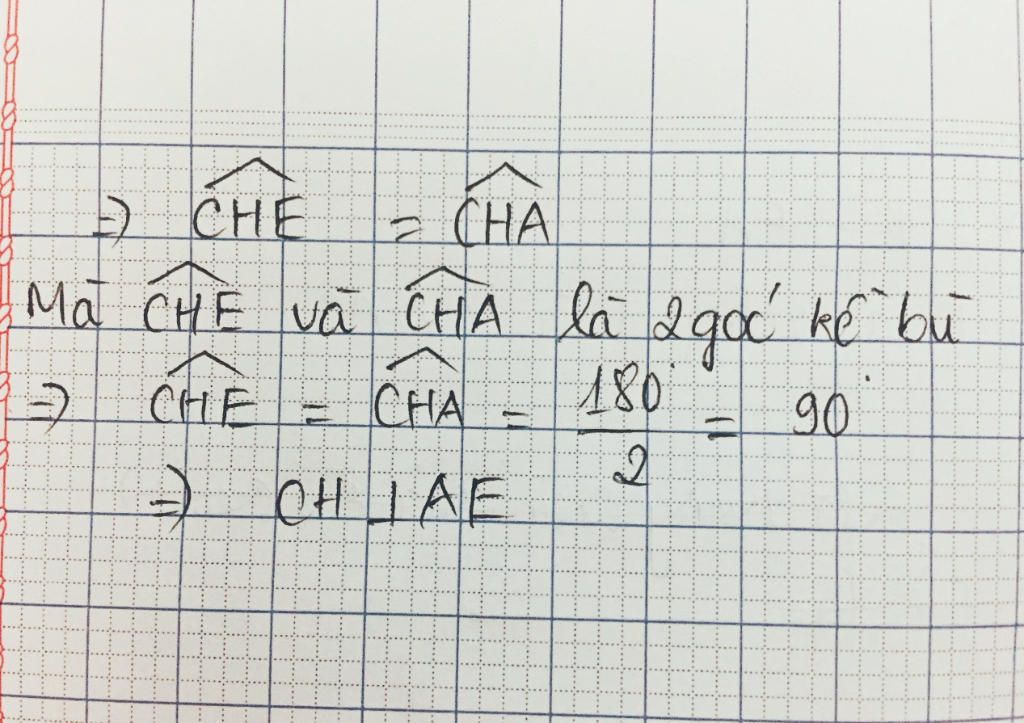 => \widehat{CHE} = \widehat{CHA}
Mà \widehat{CHE} và \widehat{CHA} là 2 góc kề bù
=> \widehat{CHE} = \widehat{CHA} = \frac{180°}{2} = 90°
=> CH ⊥ AE